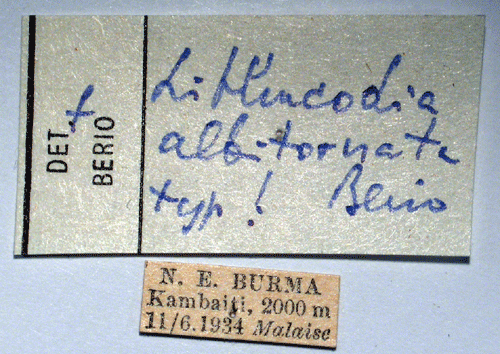 DET. f
BERIO
Lithacodia
albitornata
typ! Berio
N. E. BURMA
Kambaiti, 2000 m
11/6.1934 Malaise